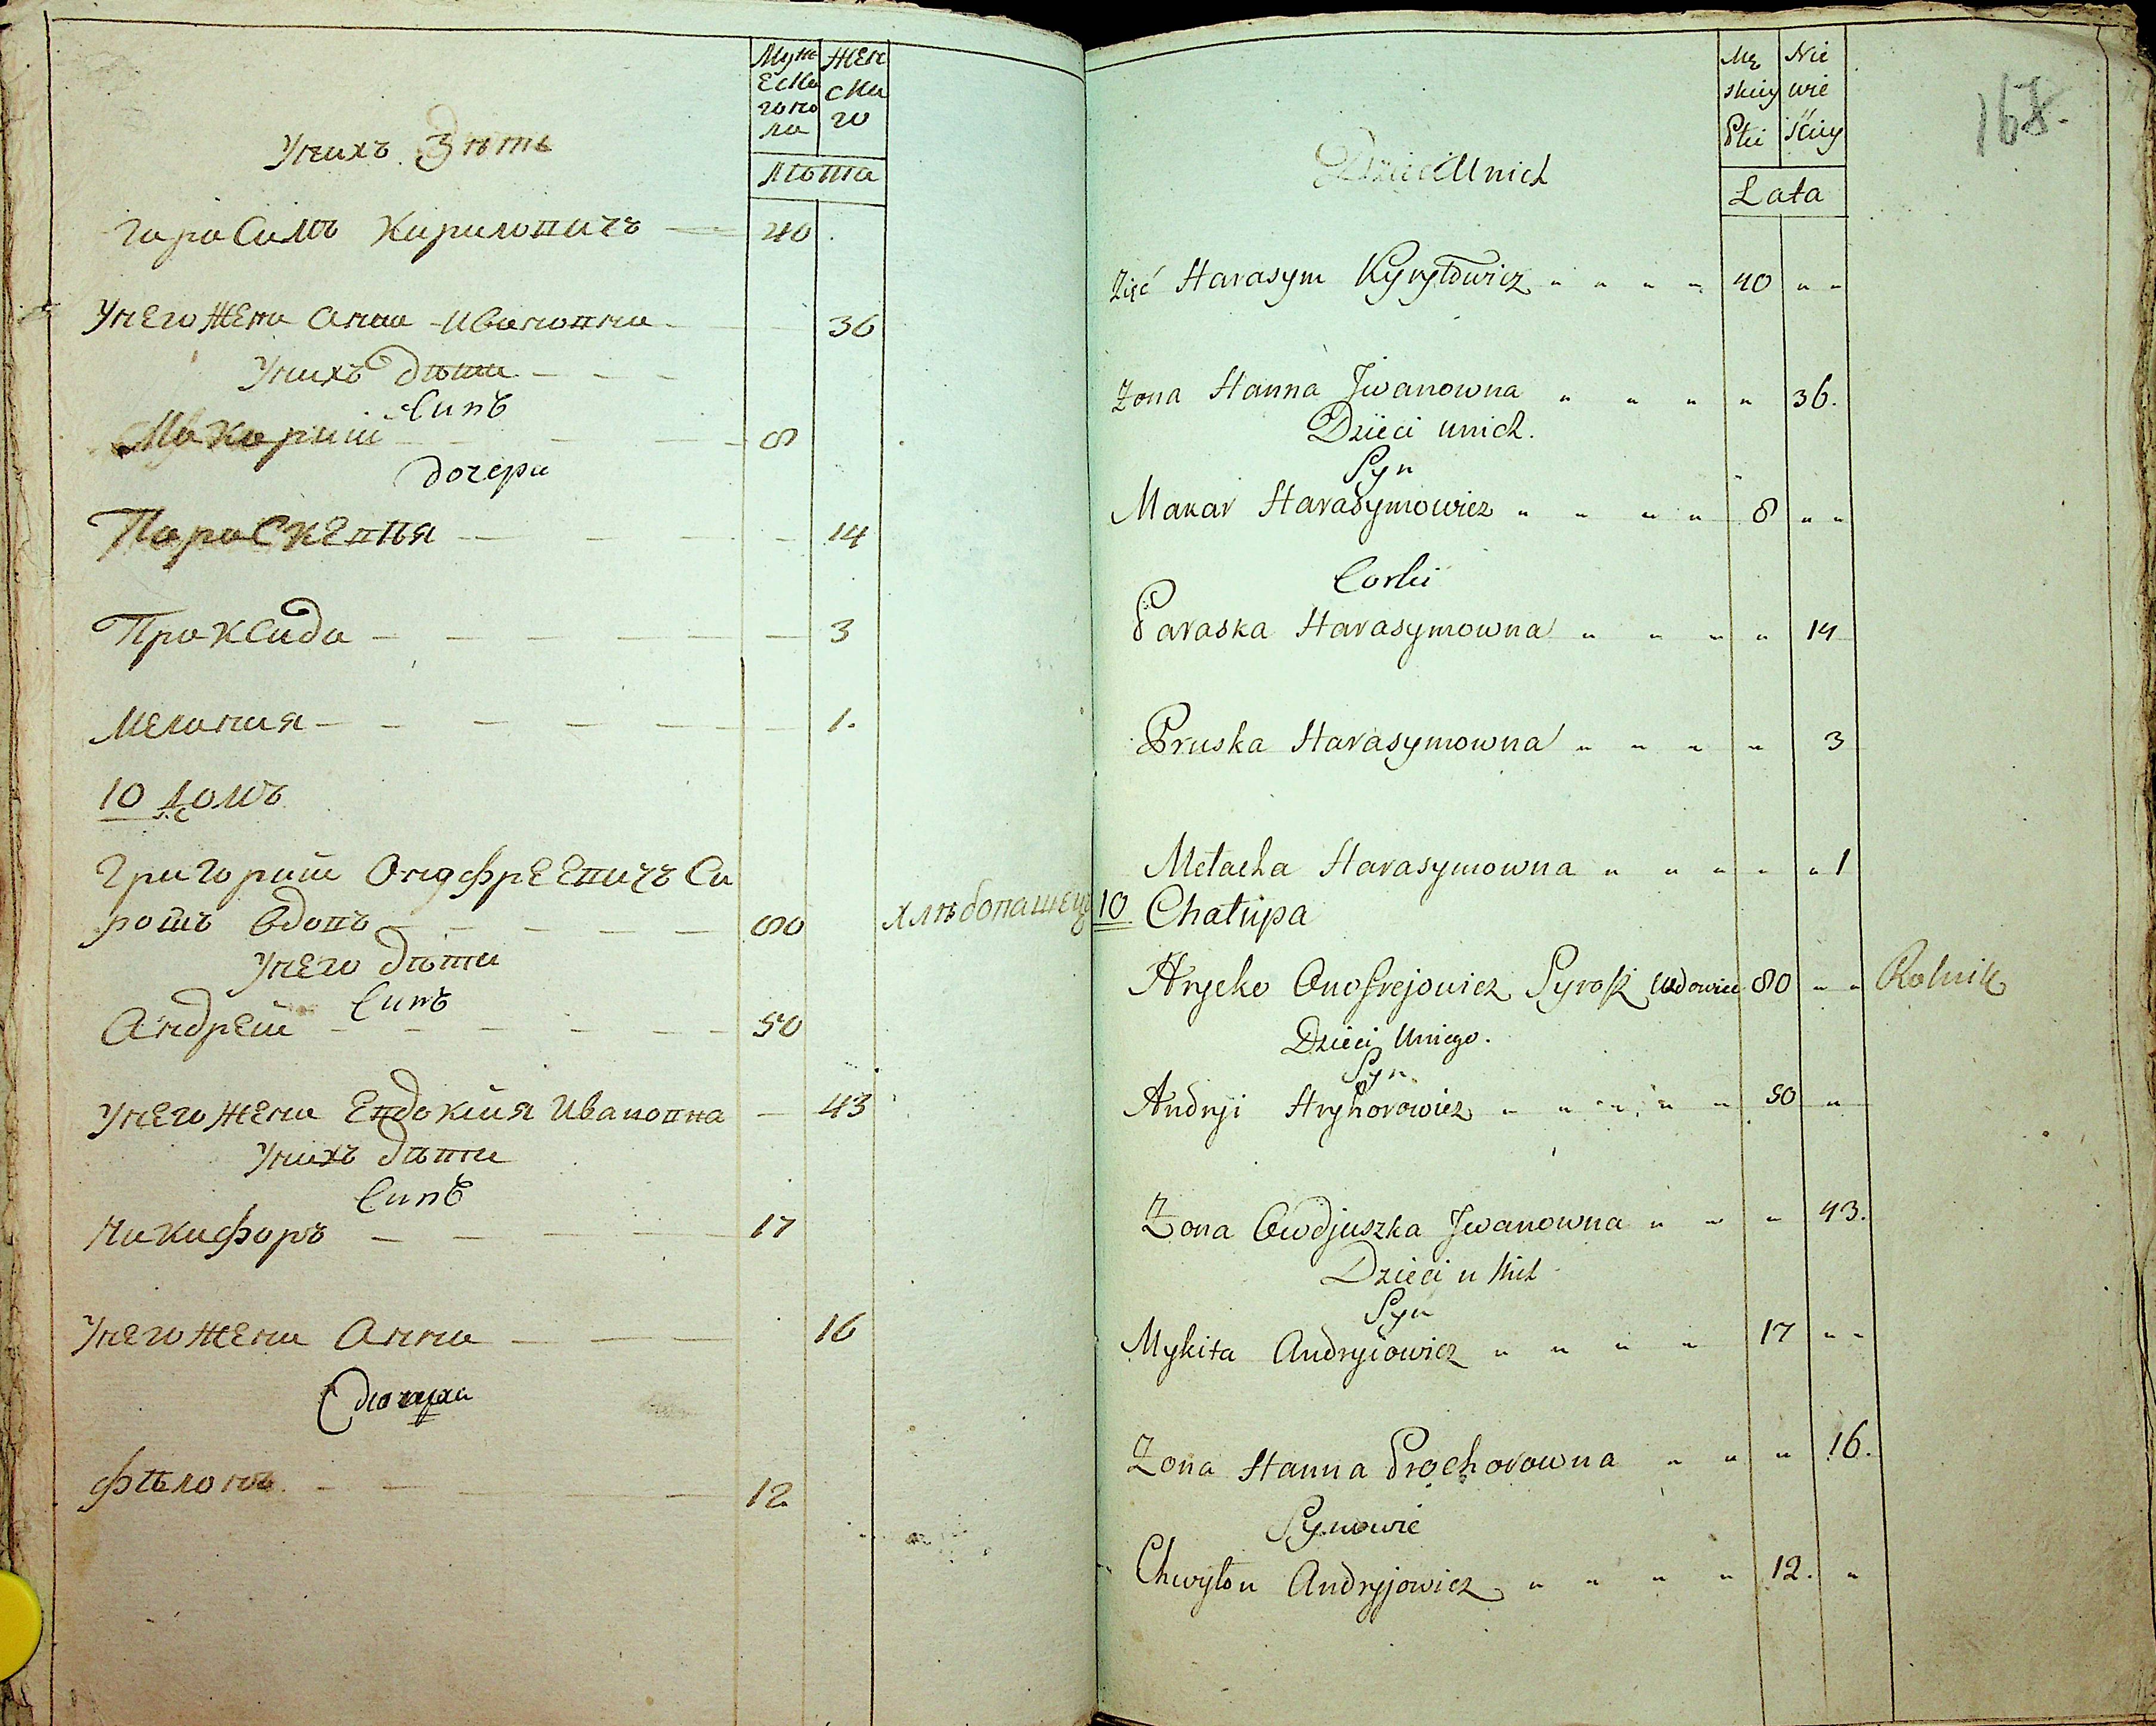 Муж Жен
еска ска
го по го
ла
Лѣта
Унихъ Зять
Гарасимъ Кириловичъ 40
Унего жена Анна Ивановна 36
Унихъ дѣти
Синъ
Макарий 8
дочери
Параскевия 14
Праксида 3
Мелания 1.
10 Домъ
Григорий Ондфреевичъ Си
рошъ вдовъ 80 хлѣбопашецъ
Унего дѣти
Синъ
Андрей 50
Унего жена Евдокия Ивановна 43
Унихъ дѣти
Синъ
Никифоръ 17
Унего жена Анна 16
Фѣлонъ 12
168.
Mę Nie
skiey wie
Płci sciey
Lata
Dzieci Unich
Zięć Harasym Kyryłowicz " " " " 40 " "
Zona Hanna Jwanowna " " " " 36.
Dzieci unich.
Syn
Makar Harasymowicz " " " " 8 " "
Corki
Paraska Harasymowna " " " " 14
Pruska Harasymowna " " " " 3
Mełacha Harasymowna " " " " " 1
10 Chałupa
Hryćko Onofrejowicz Syrosz Wdowiec 80 " " Rolnik
Dzieci Uniego.
Syn
Andryi Hryhorowicz " " " " " 50 "
Zona Owdjuszka Jwanowna " " " 43.
Dzieci u Nich
Syn
Mykita Andryiowicz " " " " 17 " "
Zona Hanna Prochorowna " " " 16.
Synowie
Chwyłon Andryjowicz " " " " 12. "